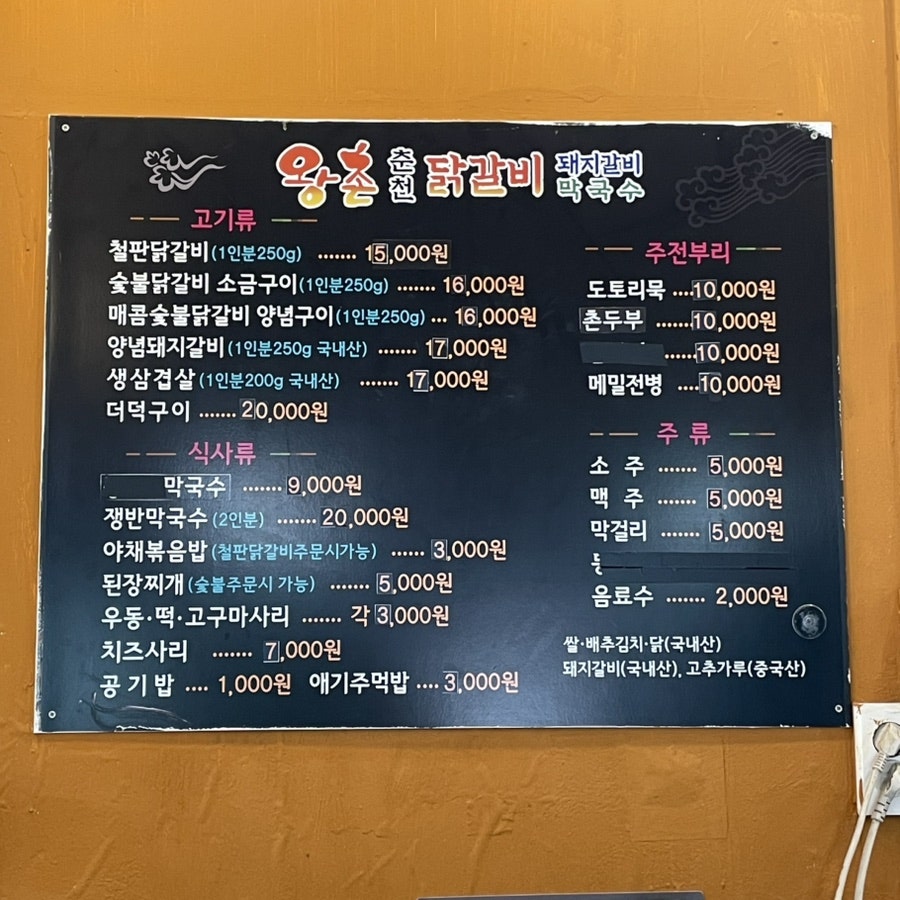 왕촌 춘천 닭갈비 돼지갈비 막국수
고기류
철판닭갈비(1인분250g) ....... 15,000원
숯불닭갈비 소금구이(1인분250g) ....... 16,000원
매콤숯불닭갈비 양념구이(1인분250g) ... 16,000원
양념돼지갈비(1인분250g 국내산) ....... 17,000원
생삼겹살(1인분200g 국내산) ....... 17,000원
더덕구이 ....... 20,000원
식사류
막국수 ....... 9,000원
쟁반막국수(2인분) ....... 20,000원
야채볶음밥(철판닭갈비주문시가능) ...... 3,000원
된장찌개(숯불주문시 가능) ....... 5,000원
우동·떡·고구마사리 ....... 각 3,000원
치즈사리 ....... 7,000원
공기밥 .... 1,000원 애기주먹밥 .... 3,000원
주전부리
도토리묵 ....10,000원
촌두부 .......10,000원
......10,000원
메밀전병 ....10,000원
주 류
소 주 ....... 5,000원
맥 주 ....... 5,000원
막걸리 ....... 5,000원
음료수 ....... 2,000원
쌀·배추김치·닭(국내산)
돼지갈비(국내산), 고추가루(중국산)